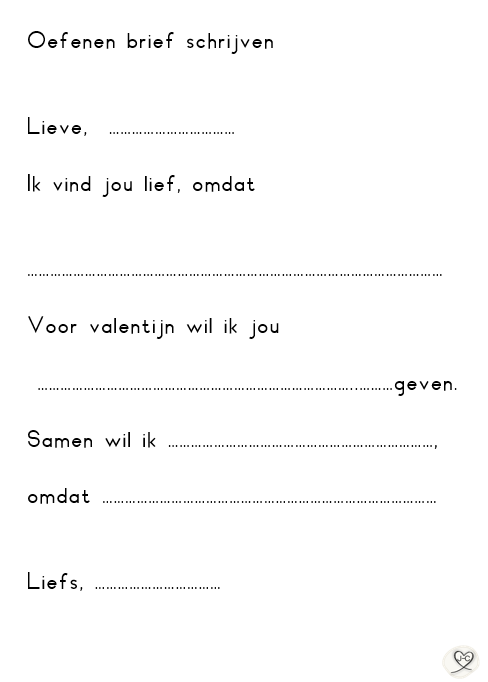 Oefenen brief schrijven
Lieve, ………………………………
Ik vind jou lief, omdat
……………………………………………………………………………………………………
Voor valentijn wil ik jou
………………………………………………………………………..………geven.
Samen wil ik ……………………………………………………………,
omdat ……………………………………………………………………………
Liefs, ……………………………
J~C